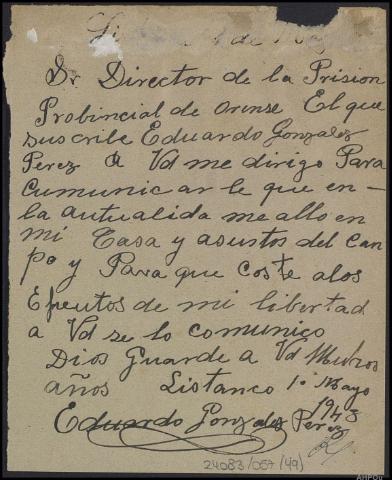 D. Director de la Prision
Probincial de Orense El que
suscribe Eduardo Gonzalez
Perez a Vd me dirigo Para
Cumunicarle que en
la autualida me allo en
mi Casa y asustos del Can
po y Para que coste alos
Efeutos de mi libertad
a Vd se lo comunico
Dios Guarde a Vd Muchos
años Listanco 1º Mayo
1943
Eduardo Gonzalez Perez
24083/057 (49)
AHPOU